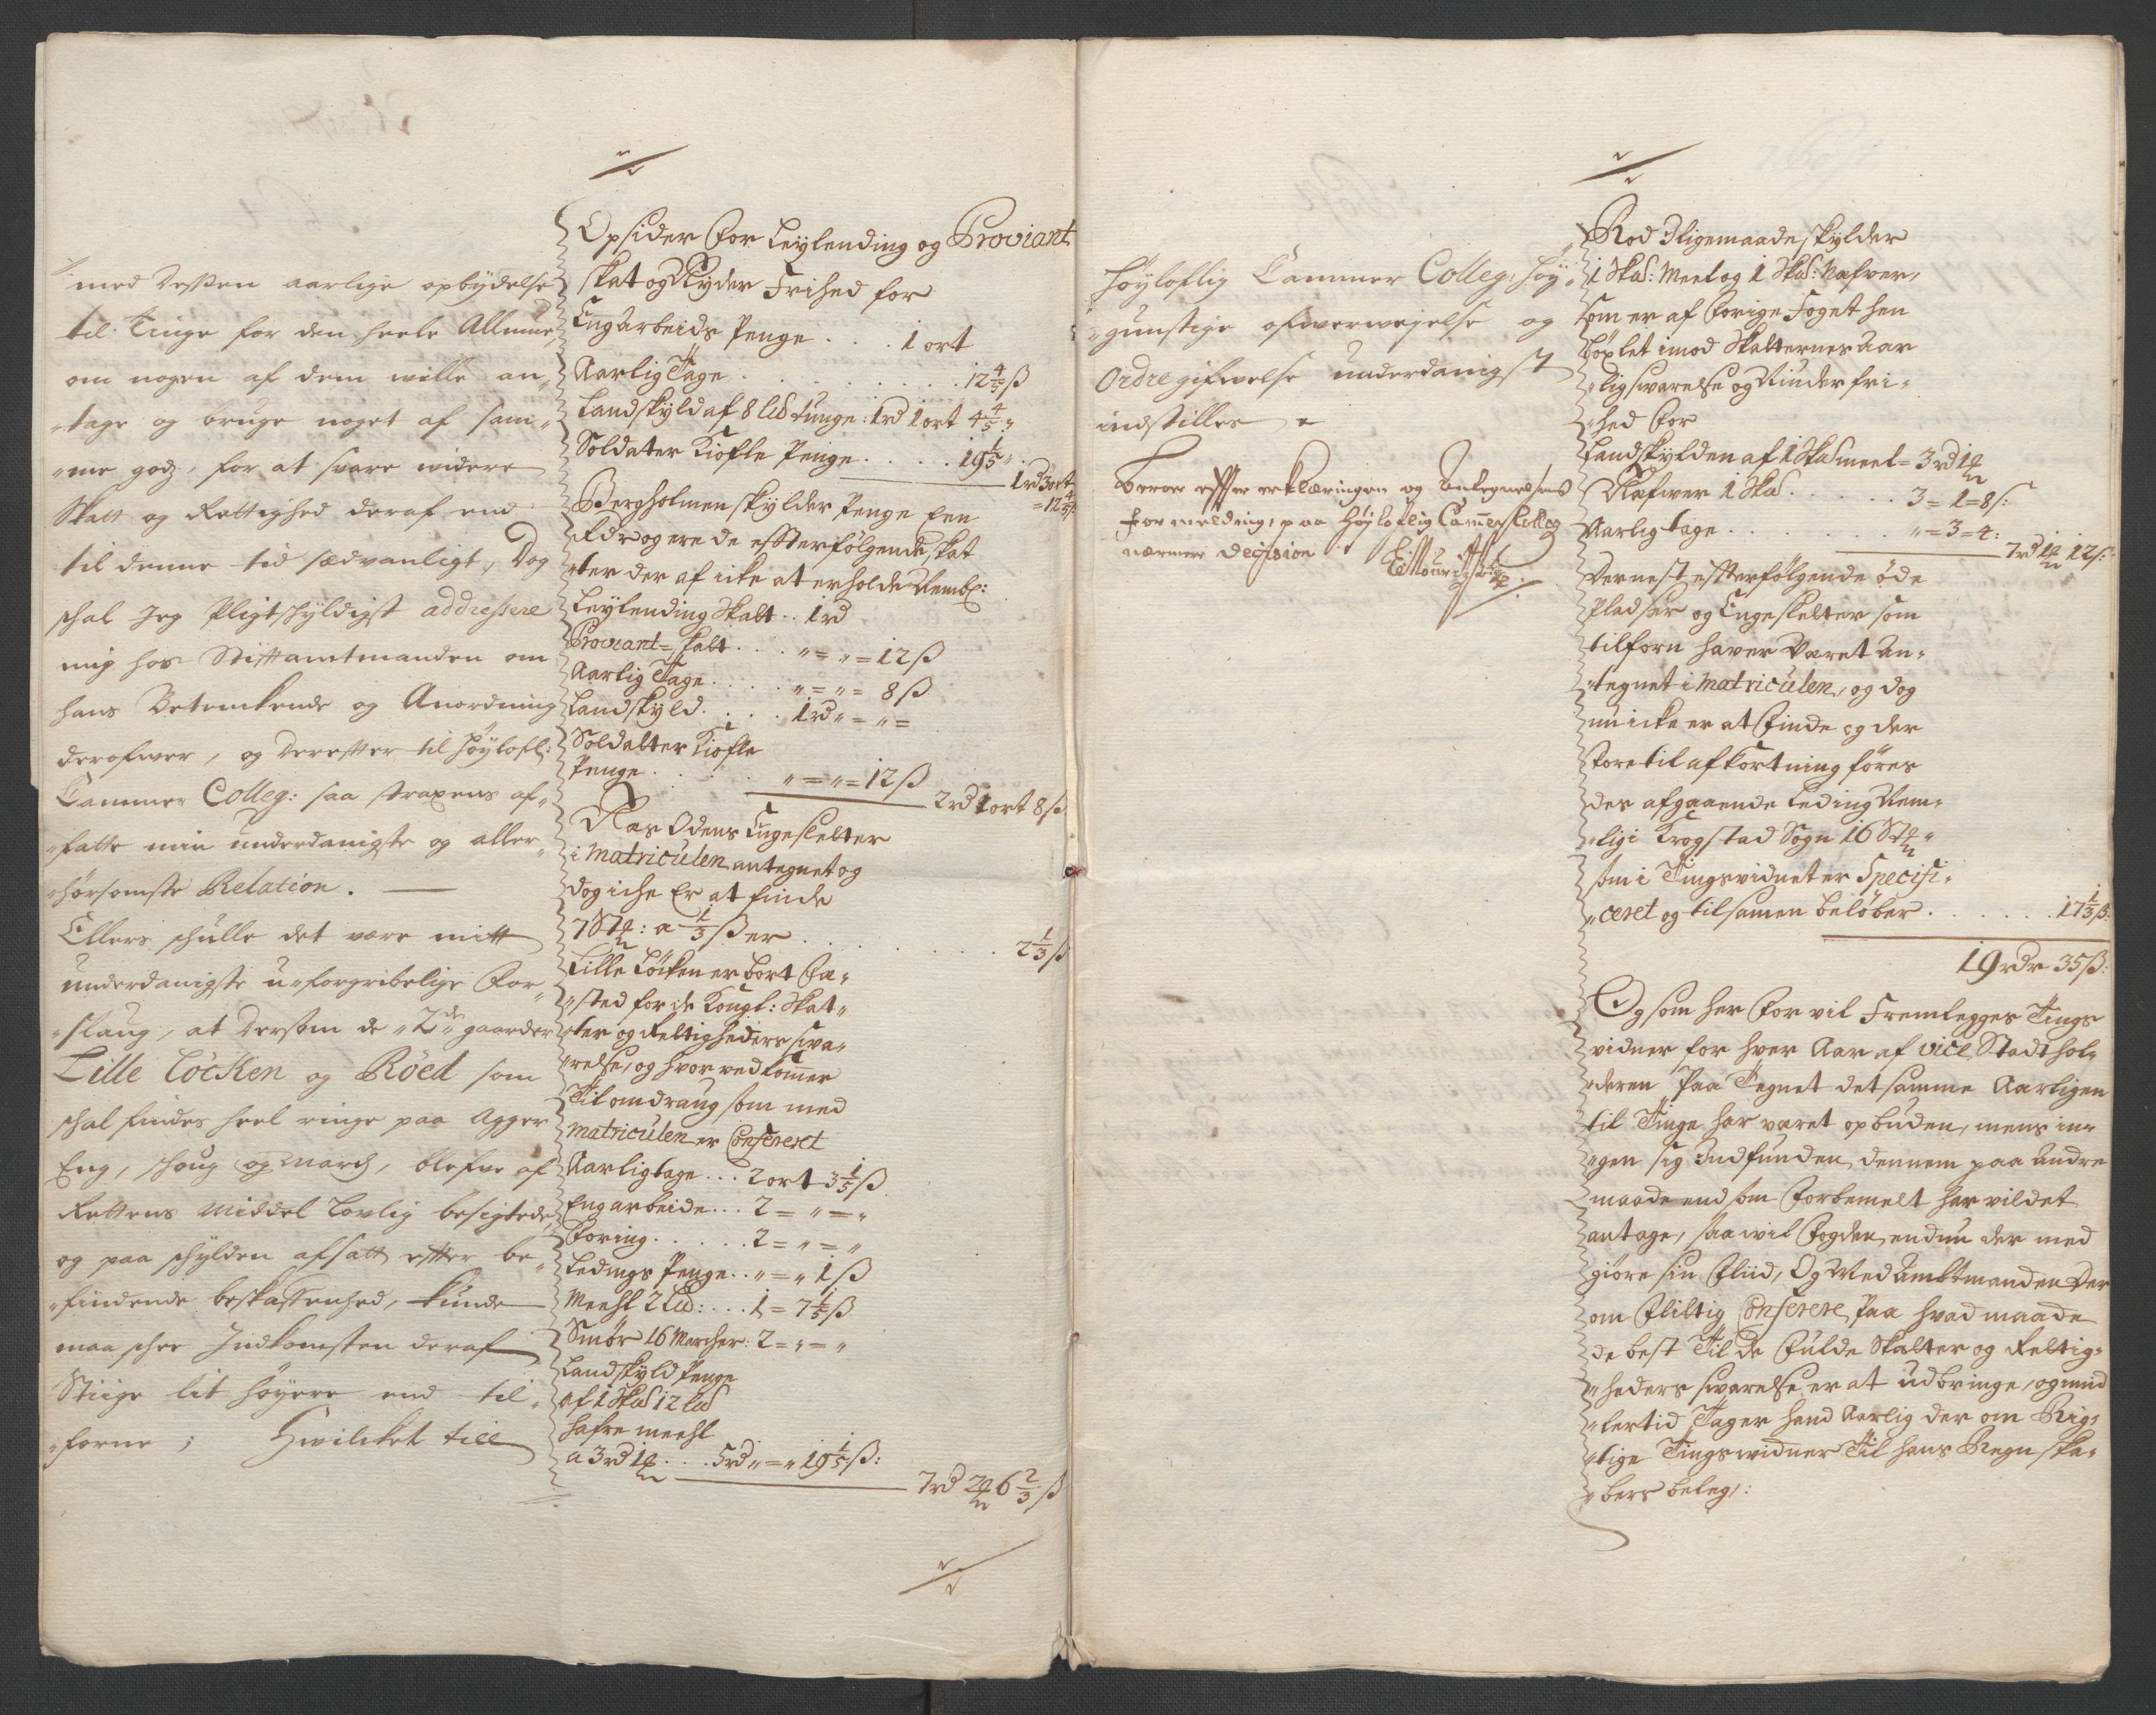 med dessen aarlige opbydelse
til Tinge for den heele Allmue,
om nogen af dem wille an„
„tage og bruge noget af sam„
„me godz, for at svare widere
Skatt og Rettighed deraf end
til denne tid sædvanligt, Dog
schal Jeg Pligtschyldigst addressere
mig hos Stifftamtmanden om
hans Betenkende og Anordning
derofwer, og dereffter til Höylofl:
Cammer Colleg: saa straxens af„
„fatte min underdanigste og aller„
„hörsomste Relation. —
Ellers schulle det være mitt
underdanigste uforgribelige For„
„slaug, at dersom de „2de„ gaarder
Lille Löcken og Röed som
schal findes heel ringe paa Agger
Eng, schoug og march, blefue af
Rettens Middel Lovlig besigtede,
og paa schylden afsatt effter be„
„findende beskaffenhed, kunde
maa schee Indkomsten deraf
Stiige lit höyere end til„
„forne; Hwilcket till
Opsider for Leylending og Proviant
skat og Nyder Frihed for
Engarbeids Penge . . . 1 ort
Aarlig Tage . . . . . . . 12 4/5 ß
Landskyld af 8 Lid tunge: 1rd 1 ort 4 4/5 „
Soldater Kiofle Penge . . . . . 19 1/5 „
1rd 3 ort
= 12 4/5 ß
Bergholmen skylder Penge Een
Rdr og ere de effterfölgende skat
„ter der af icke at erholde Nembl:
Leylending Skatt . . 1rd
Proviant = skatt . . . „ = „ = 12 ß
Aarlig Tage . . . . „ = „ = 8 ß
Landskyld . . . . 1rd „ = „ =
Soldatter Kiofle
Penge . . . . . „ = „ = 12 ß
2rd 1 ort 8 ß
Aas Odens Engesletter
i Matriculen antegnet og
dog iche Er at finde
7 Stq: a 1/3 ß er . . . . . . . 2 1/3 ß
Lille Löcken er bort fæ„
„sted for de Kongl: Skat„
„ter og Rettigheders swa„
„relse, og hvor ved kommer
Til omdraug som med
Matriculen er Confereret
Aarlig tage . . . 2 ort 3 1/5 ß
Engarbeide . . . 2 = „ = „
Foring . . . . . 2 = „ = „
Ledings Penge . . „ = „ 1 ß
Meehl 2 Lid: . . . 1 = 7 1/5 ß
Smör 16 Marcher: 2 = „ = „
Landskyld Penge
af 1 Skud 12 Lid
hafre meehl
a 3rd 1q . . . 5rd „ = „ 19 1/5 ß:
7rd 2q 6 2/3 ß
höyloflig Cammer Colleg: höy„
„gunstige ofwerweyelse og
Ordre gifwelse underdanigst
indstilles
Beroer effter erklæringen og Antegnelsens
formelding, paa Höyloflig Cammer Colleg
nærmere Decision
Röd Iligemaade skylder
1 Skud: Meel og 1 Skud: Hafwer,
som er af forige Foget hen
böxlet imod Skatternes aar
„lig swarelse og Nuder fri„
„hed for
Landskylden af 1 Skud meel = 3rd 1q
Hafwer 1 Skud . . . . . 3 = 1 = 8 ß:
Aarlig tage . . . . . . „ = 3 = 4:
7rd 1q 12 ß:
Dernest effterfölgende öde
Pladser og Engesletter som
tilforn haver Været an„
„tegnet i Matriculen, og dog
nu icke er at finde og der
fore til afkortning föres
des afgaaende Leding Nem„
„lig i Krogstad Sogn 16 Stq „
som i Tingsvidnet er Specifi„
„ceret og tilsamen belöber . . . . . . 17 1/3 ß:
19 rdr 35 ß:
Og som her for vil Fremlegges Tings
vidner for hver Aar af Vice Stadthol„
„deren Paa Tegnet det samme Aarligen
til Tinge har været opbuden, mens in„
„gen sig Indfunden dennem paa andre
maade end som forbemelt har vildet
antage, saa wil Fogden endnu der med
giöre sin Fliid, Og Wed Ambtmanden Der
om Flittig Conferere Paa hvad maade
de best Til de Fulde Skatter og Rettig„
„heders swarelse er at udbringe, og mid
„lertid Tager hand Aarlig der om Rig„
„tige Tingswidner Til hans Regn ska„
„bers beleg: